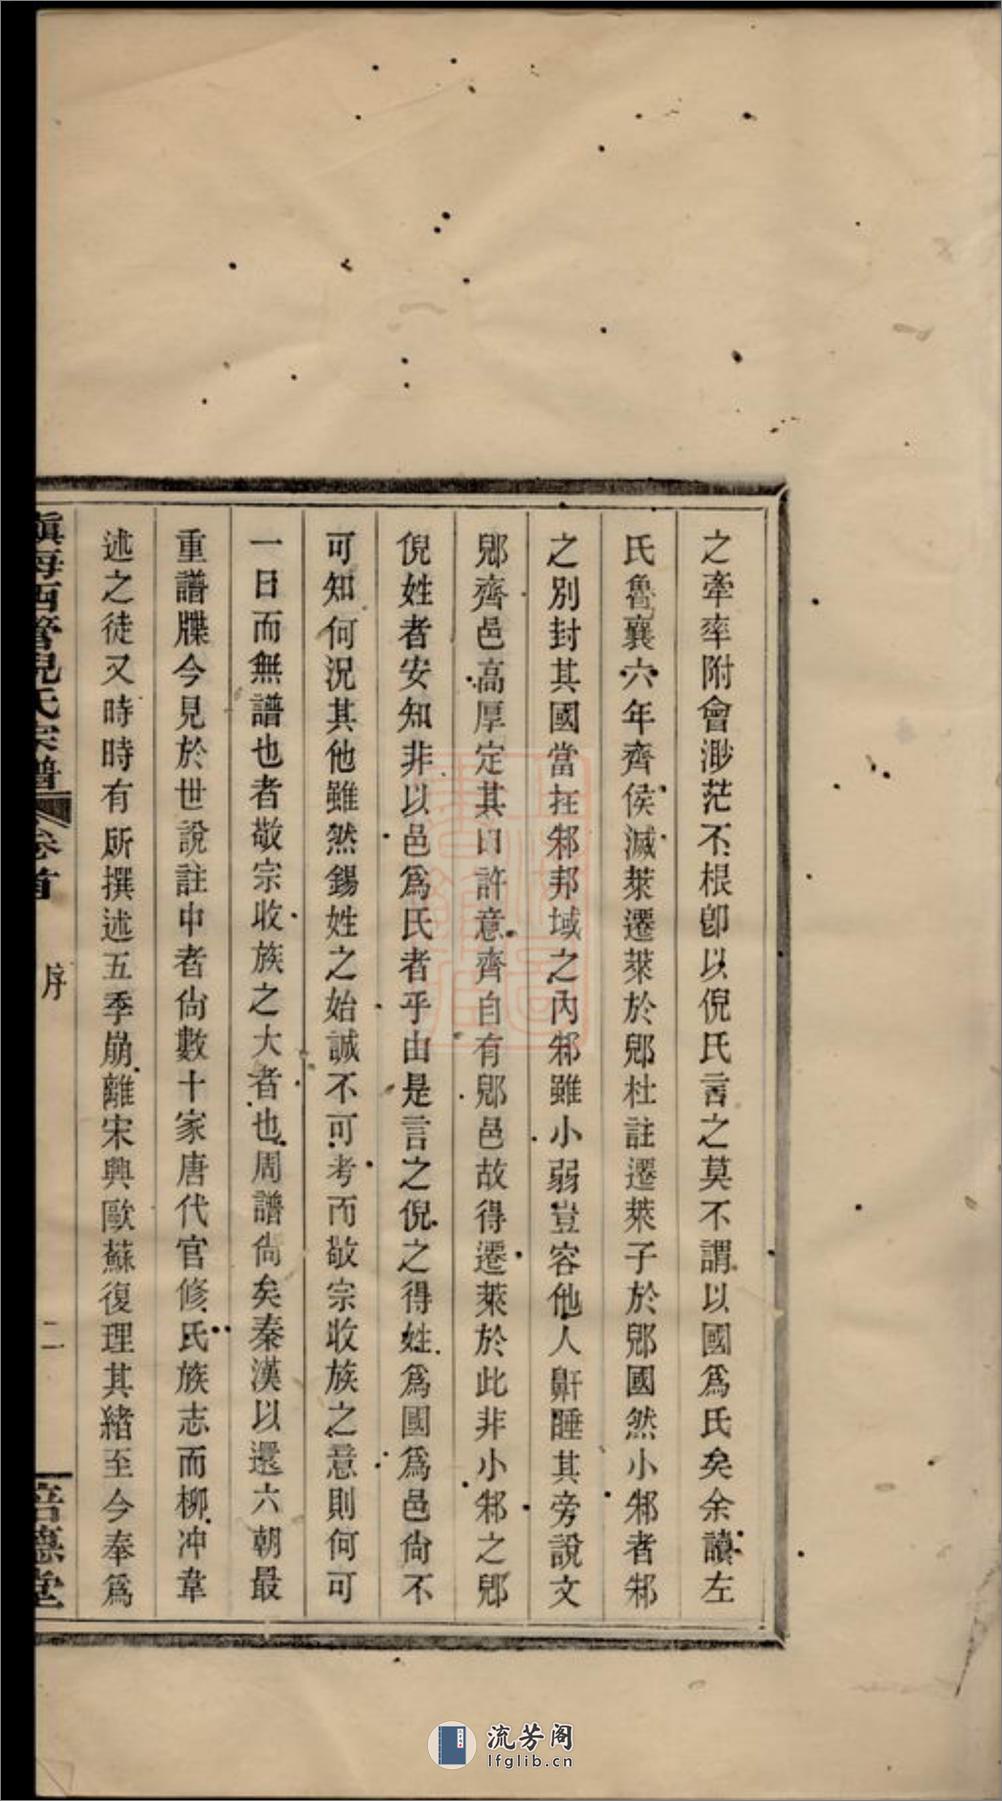 之牽率附會渺茫不根卽以倪氏言之莫不謂以國爲氏矣余讀左
氏魯襄六年齊侯滅萊遷萊於郳杜註遷萊子於郳國然小邾者邾
之別封其國當在邾邦域之內邾雖小弱豈容他人鼾睡其旁說文
郳齊邑高厚定其田許意齊自有郳邑故得遷萊於此非小邾之郳
倪姓者安知非以邑爲氏者乎由是言之倪之得姓爲國爲邑尙不
可知何況其他雖然錫姓之始誠不可考而敬宗收族之意則何可
一日而無譜也者敬宗收族之大者也周譜尙矣秦漢以還六朝最
重譜牒今見於世說註中者尙數十家唐代官修氏族志而柳冲韋
述之徒又時時有所撰述五季崩離宋興歐蘇復理其緒至今奉爲
鎭海西管倪氏宗譜 卷首 序 二 培德堂
流芳阁
lfglib.cn